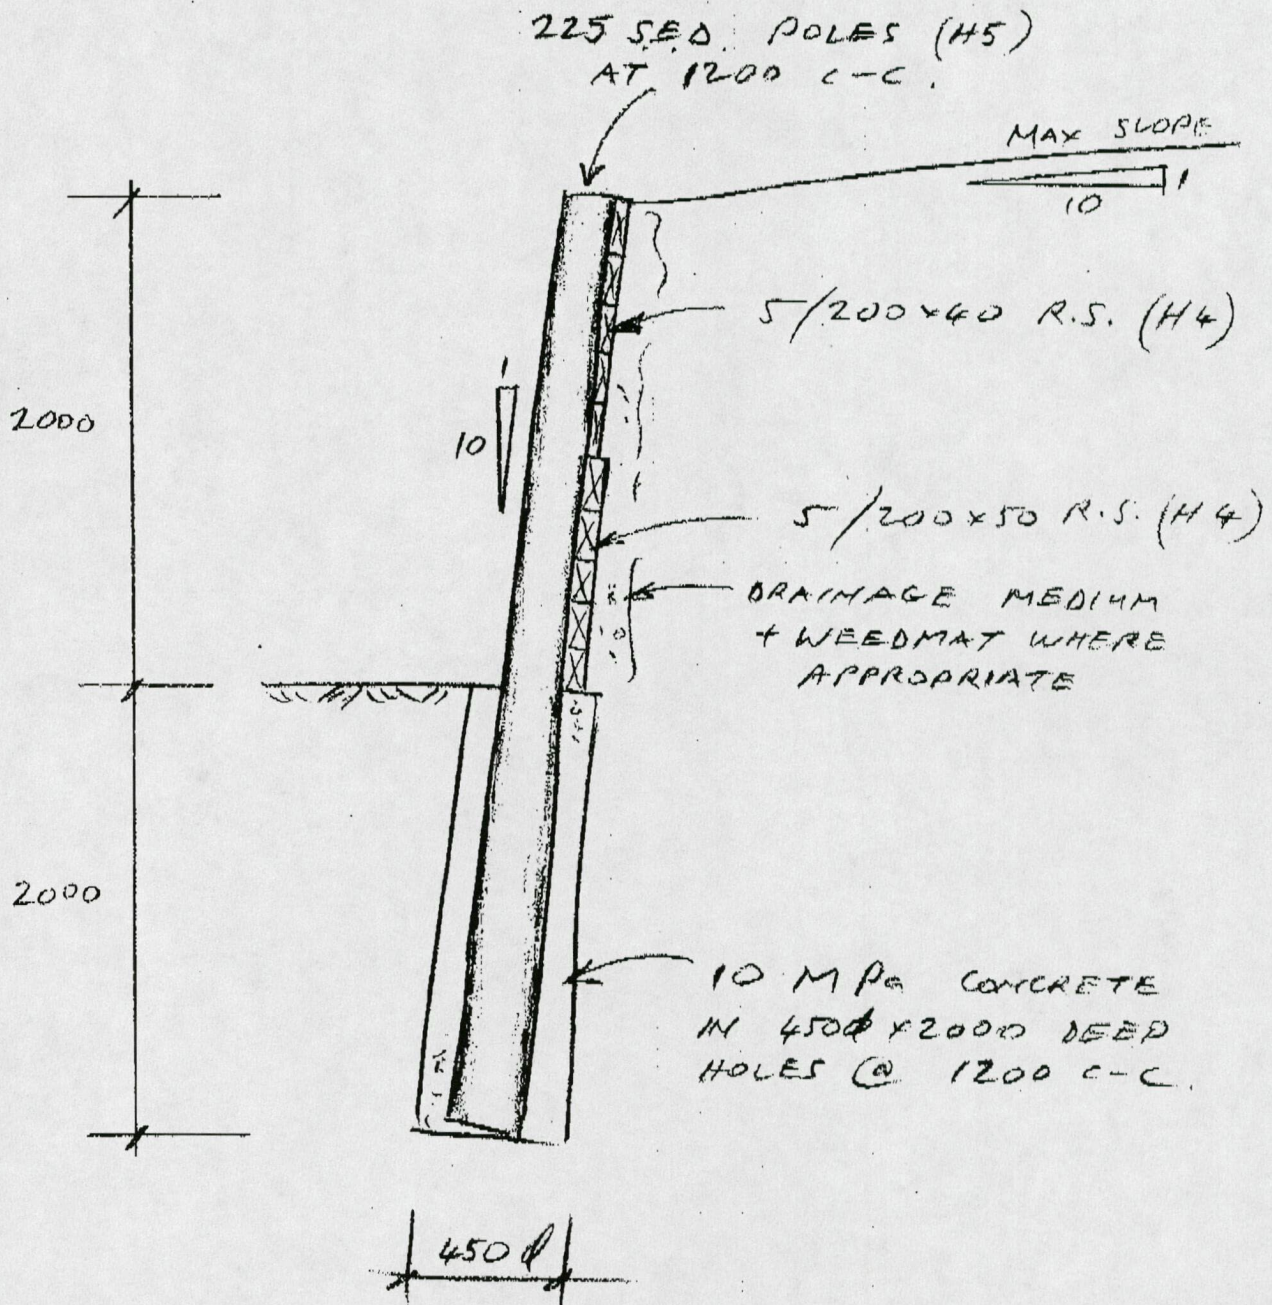 225 S.E.D. POLES (H5)
AT 1200 C-C.
MAX SLOPE
1
10
5/200x40 R.S. (H4)
2000
1
10
5/200x50 R.S. (H4)
DRAINAGE MEDIUM
+ WEEDMAT WHERE
APPROPRIATE
2000
10 MPa CONCRETE
IN 450ϕ x 2000 DEEP
HOLES @ 1200 C-C.
450ϕ